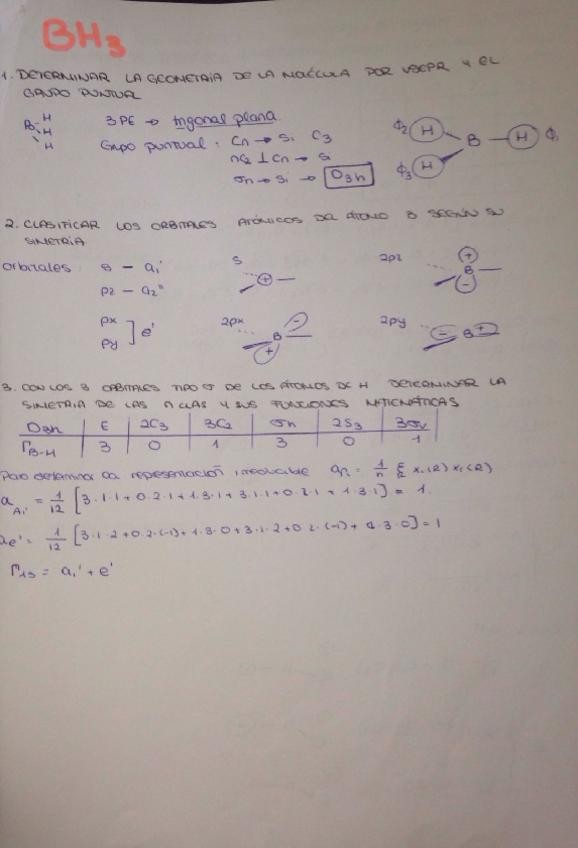 BH3
1. DETERMINAR LA GEOMETRÍA DE LA MOLÉCULA POR VSEPR Y EL
GRUPO PUNTUAL
B-H
H
H
3PE → trigonal plana.
Grupo puntual: Cn → Si C3
nC2 ⊥ Cn → Si
σh → Si → D3h
ϕ2 H B H ϕ1
ϕ3 H
2. CLASIFICAR LOS ORBITALES ATÓMICOS DEL ÁTOMO B SEGÚN SU
SIMETRÍA
Orbitales s - a1'
pz - a2"
px
py ] e'
s +
2pz + B -
2px - B +
2py - B +
3. CON LOS 3 ORBITALES TIPO σ DE LOS ÁTOMOS DE H DETERMINAR LA
SIMETRÍA DE LAS Y SUS FUNCIONES MATEMÁTICAS
D3h E 2C3 3C2 σh 2S3 3σv
ΓB-H 3 0 1 3 0 1
Para determinar la representación irreducible aR = 1/n Σ x.(R) x.(R)
aA1' = 1/12 [3·1·1+0·2·1+1·3·1+3·1·1+0·2·1+1·3·1] = 1.
ae' = 1/12 [3·1·2+0·2·(-1)+1·3·0+3·1·2+0·2·(-1)+1·3·0] = 1
Γ1s = a1' + e'